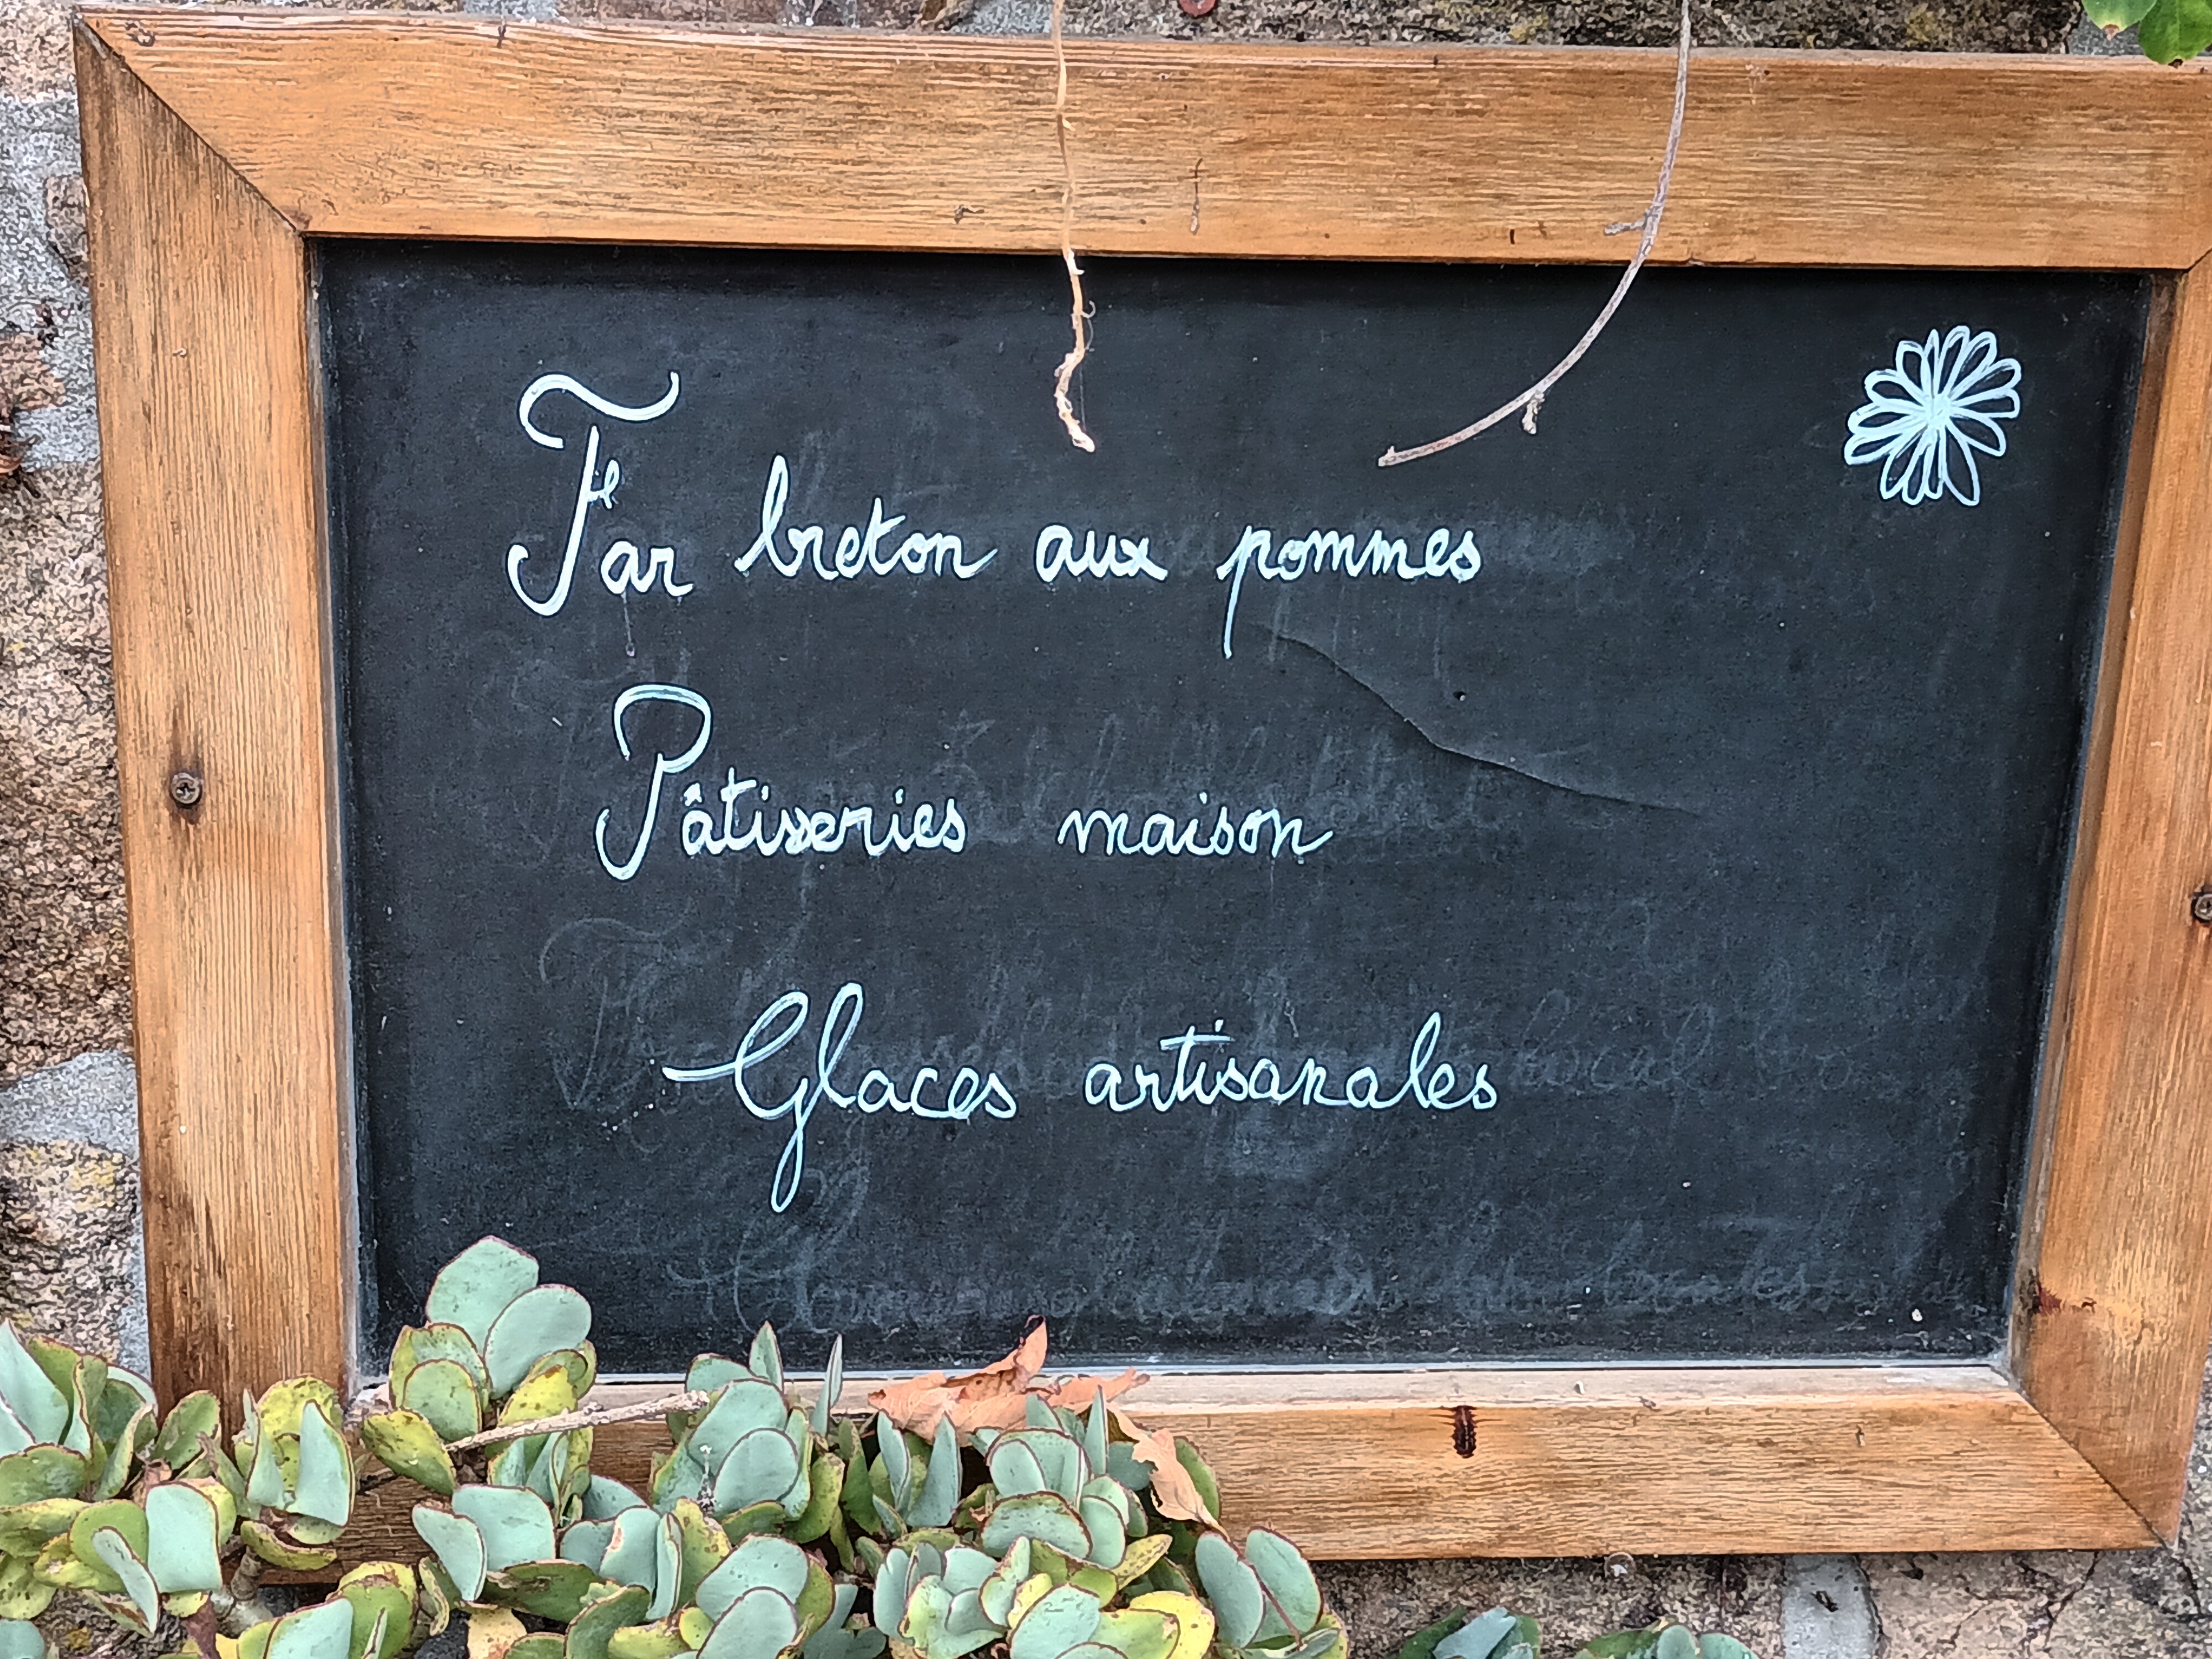 Far breton aux pommes
Pâtisseries maison
Glaces artisanales